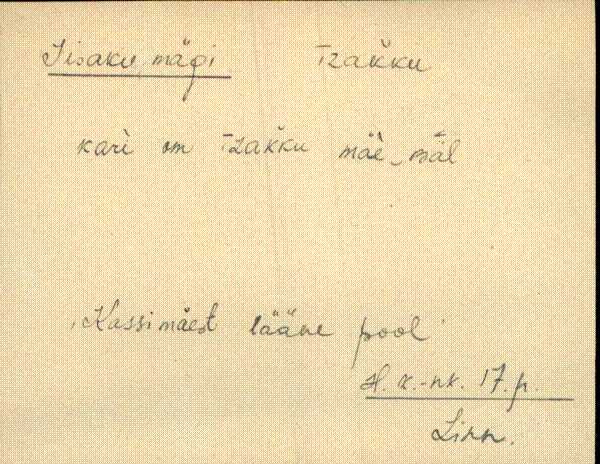 Iisaku mägi Izakku
kari om Izakku mäe pääl
Kassimäest lääne pool
H. k.-nk. 17. p.
Linn.